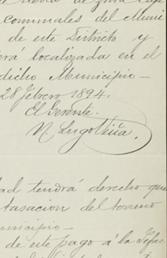 comunales del Muni
de este Distrito y
erá localizada en el
dicho Municipio —
28 febrero 1894.
El Gerente.
N. Lugo Viña
dad tendrá derecho que
tasacion del terreno
unicipio —
de este pago á la Tesor